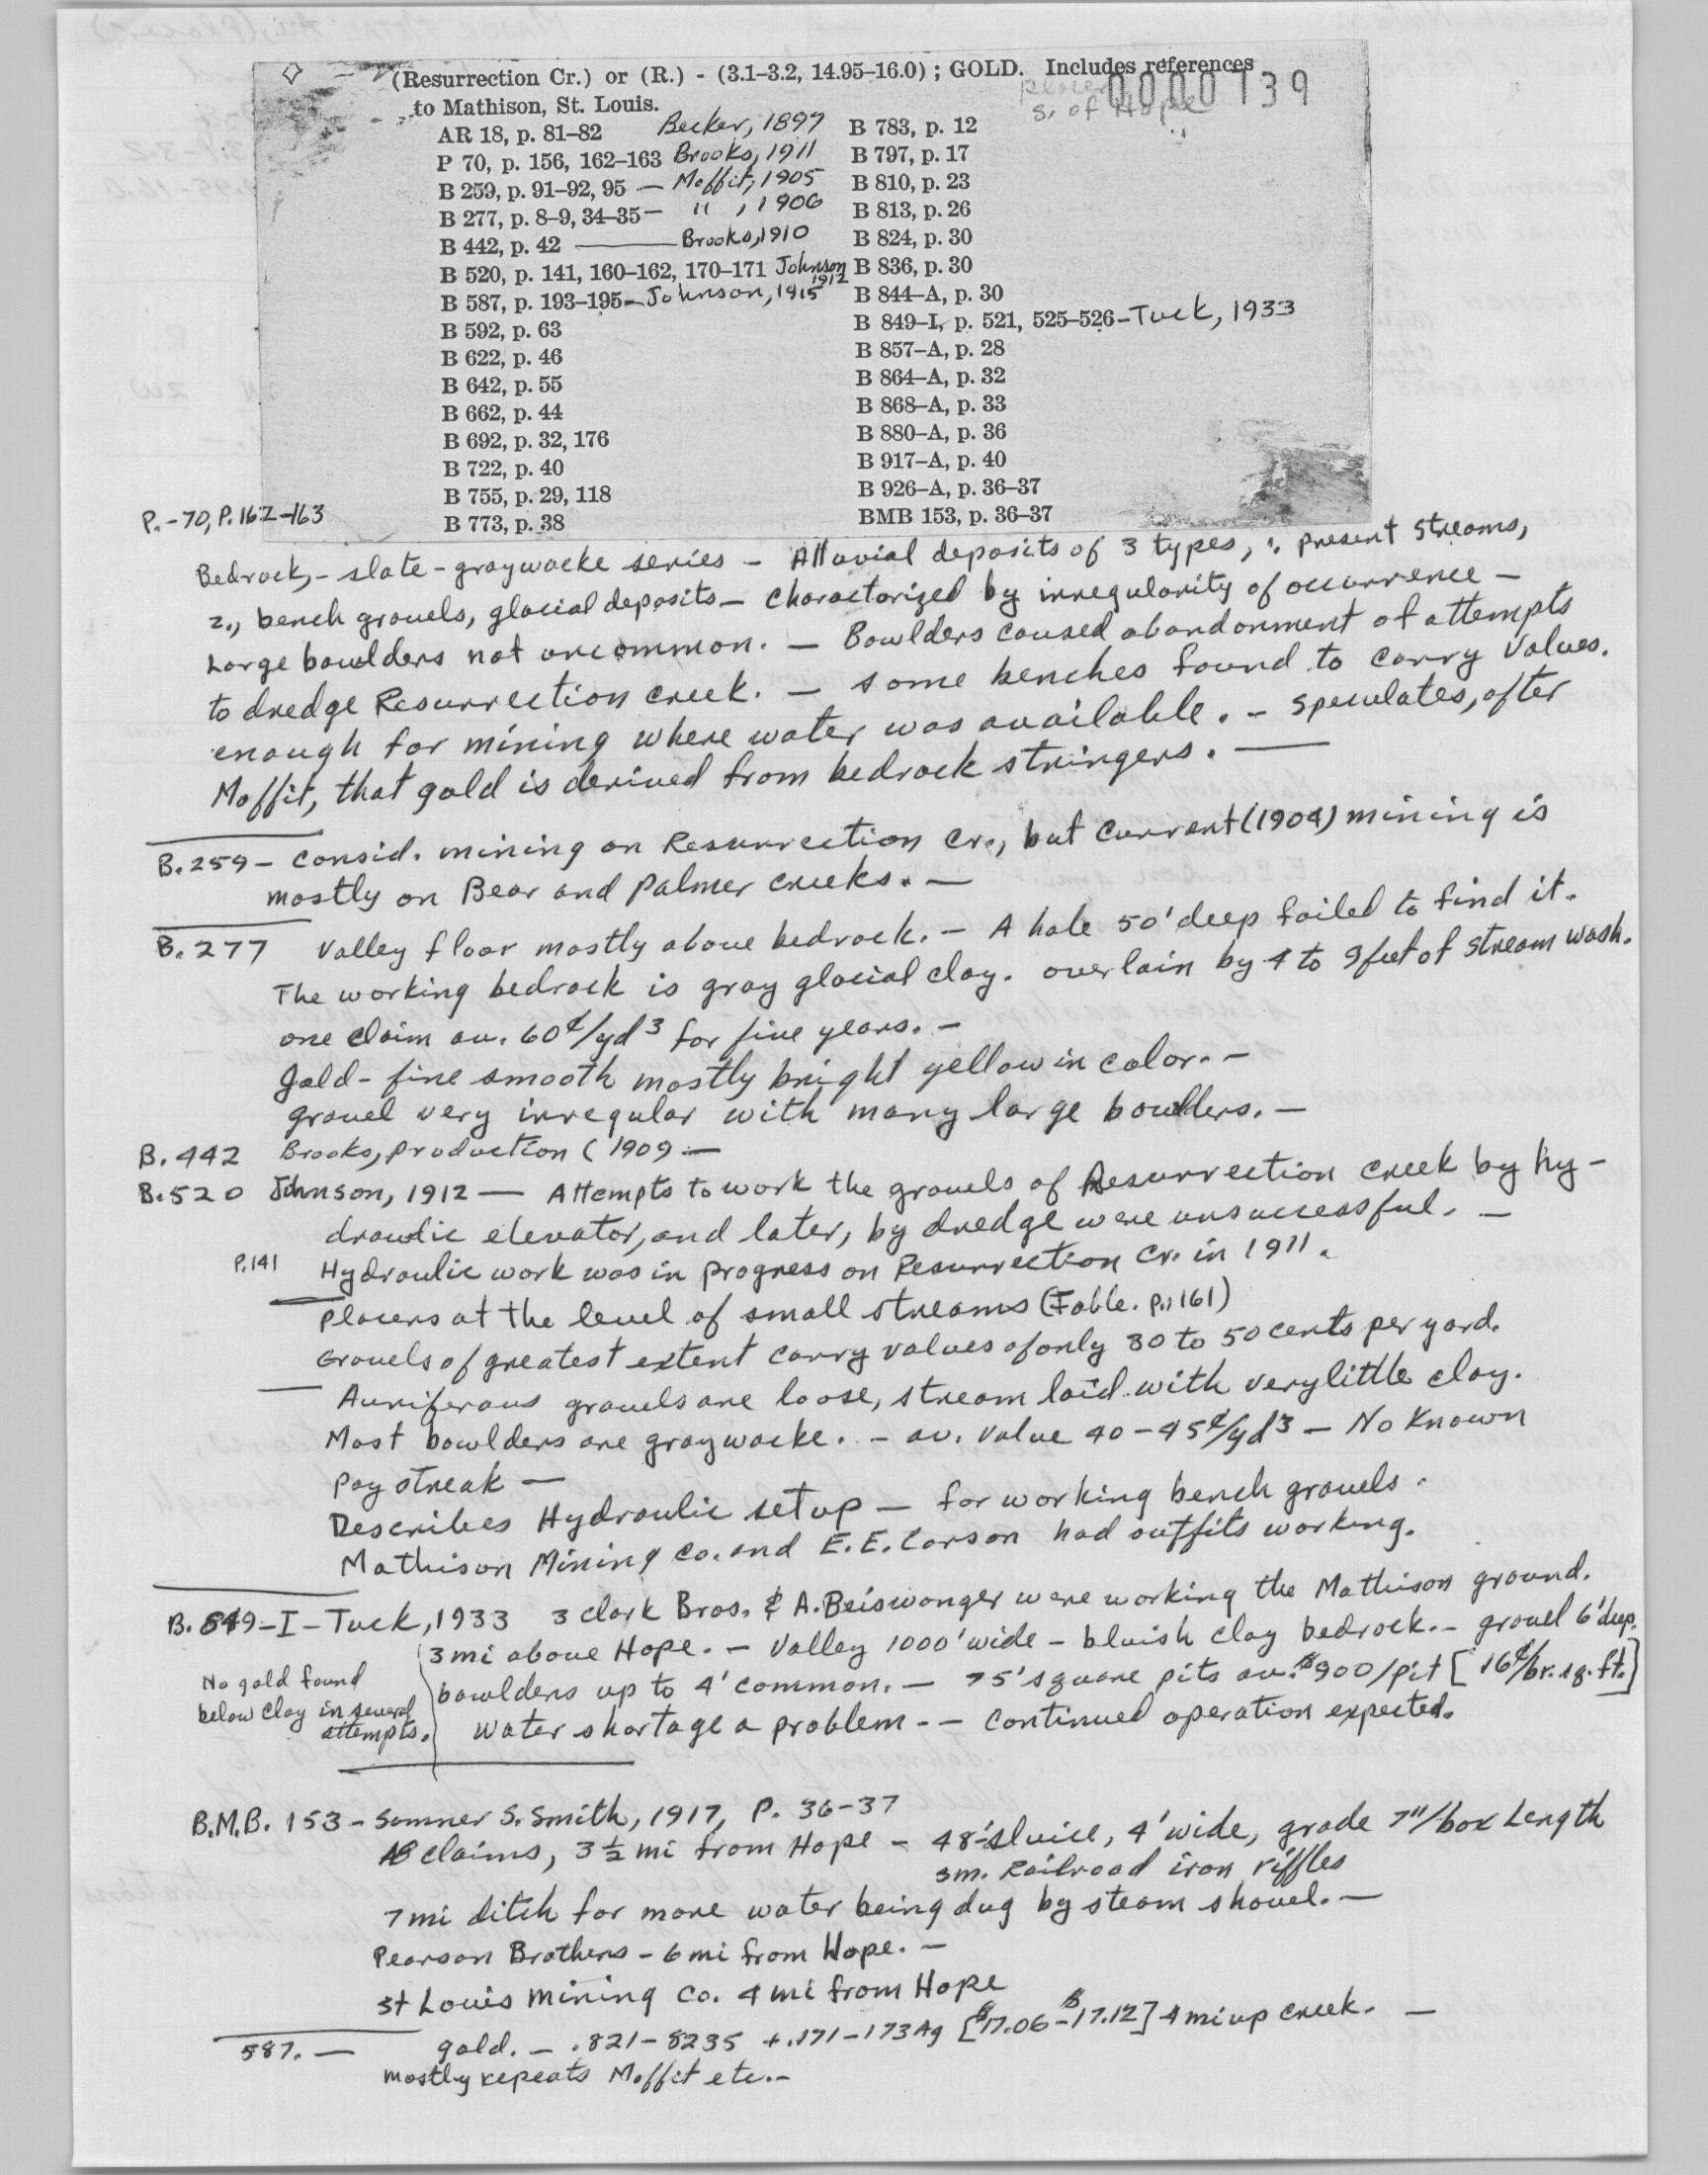 (Resurrection Cr.) or (R.) - (3.1–3.2, 14.95–16.0) ; GOLD. Includes references
to Mathison, St. Louis.
placer
0000139
s. of Hope
AR 18, p. 81–82 Becker, 1897
P 70, p. 156, 162–163 Brooks, 1911
B 259, p. 91–92, 95 — Moffit, 1905
B 277, p. 8–9, 34–35 — " , 1906
B 442, p. 42 — Brooks, 1910
B 520, p. 141, 160–162, 170–171 Johnson 1912
B 587, p. 193–195 – Johnson, 1915
B 592, p. 63
B 622, p. 46
B 642, p. 55
B 662, p. 44
B 692, p. 32, 176
B 722, p. 40
B 755, p. 29, 118
B 773, p. 38
B 783, p. 12
B 797, p. 17
B 810, p. 23
B 813, p. 26
B 824, p. 30
B 836, p. 30
B 844–A, p. 30
B 849–I, p. 521, 525–526 – Tuck, 1933
B 857–A, p. 28
B 864–A, p. 32
B 868–A, p. 33
B 880–A, p. 36
B 917–A, p. 40
B 926–A, p. 36–37
BMB 153, p. 36–37
P.-70, P. 162-163
Bedrock, - slate - graywacke series - Alluvial deposits of 3 types, 1. present streams,
2., bench gravels, glacial deposits - Charactorized by irregularity of occurrence -
Large bowlders not uncommon. - Bowlders caused abandonment of attempts
to dredge Resurrection creek. - some benches found to carry values.
enough for mining where water was available. - speculates, after
Moffit, that gold is derived from bedrock stringers. —
B. 259 - Consid. mining on Resurrection Cr., but current (1904) mining is
mostly on Bear and Palmer creeks. -
B. 277 Valley floor mostly above bedrock. - A hole 50' deep failed to find it.
The working bedrock is gray glacial clay. overlain by 4 to 9 feet of stream wash.
one claim av. 60¢/yd3 for five years. -
Gold - fine smooth mostly bright yellow in color. -
gravel very irregular with many large bowlders. -
B. 442 Brooks, production (1909 -
B. 520 Johnson, 1912 — Attempts to work the gravels of Resurrection creek by hy-
draulic elevator, and later, by dredge were unsuccessful. -
P. 141 Hydraulic work was in progress on Resurrection Cr. in 1911.
Placers at the level of small streams (Table. p., 161)
Gravels of greatest extent carry values of only 30 to 50 cents per yard.
Auriferous gravels are loose, stream laid with very little clay.
Most bowlders are graywacke. - av. value 40-45¢/yd3 - No Known
pay streak -
Describes Hydraulic setup - for working bench gravels.
Mathison Mining Co. and E. E. Carson had outfits working.
B. 849-I - Tuck, 1933 3 Clark Bros. & A. Beiswanger were working the Mathison ground.
3 mi above Hope. - Valley 1000' wide - bluish clay bedrock. - gravel 6' deep.
bowlders up to 4' common. - 75' square pits av. $900/pit [16¢/br. sq. ft.]
Water shortage a problem. - Continued operation expected.
No gold found
below clay in several
attempts.
B.M.B. 153 - Sumner S. Smith, 1917, P. 36-37
claims, 3½ mi from Hope - 48' sluice, 4' wide, grade 7"/box Length
sm. Railroad iron riffles
7 mi ditch for more water being dug by steam shovel. -
Pearson Brothers - 6 mi from Hope. -
St Louis Mining Co. 4 mi from Hope
587. — gold. - .821-8235 + .171-173 Ag [$17.06-$17.12] 4 mi up creek. -
mostly repeats Moffit etc. -